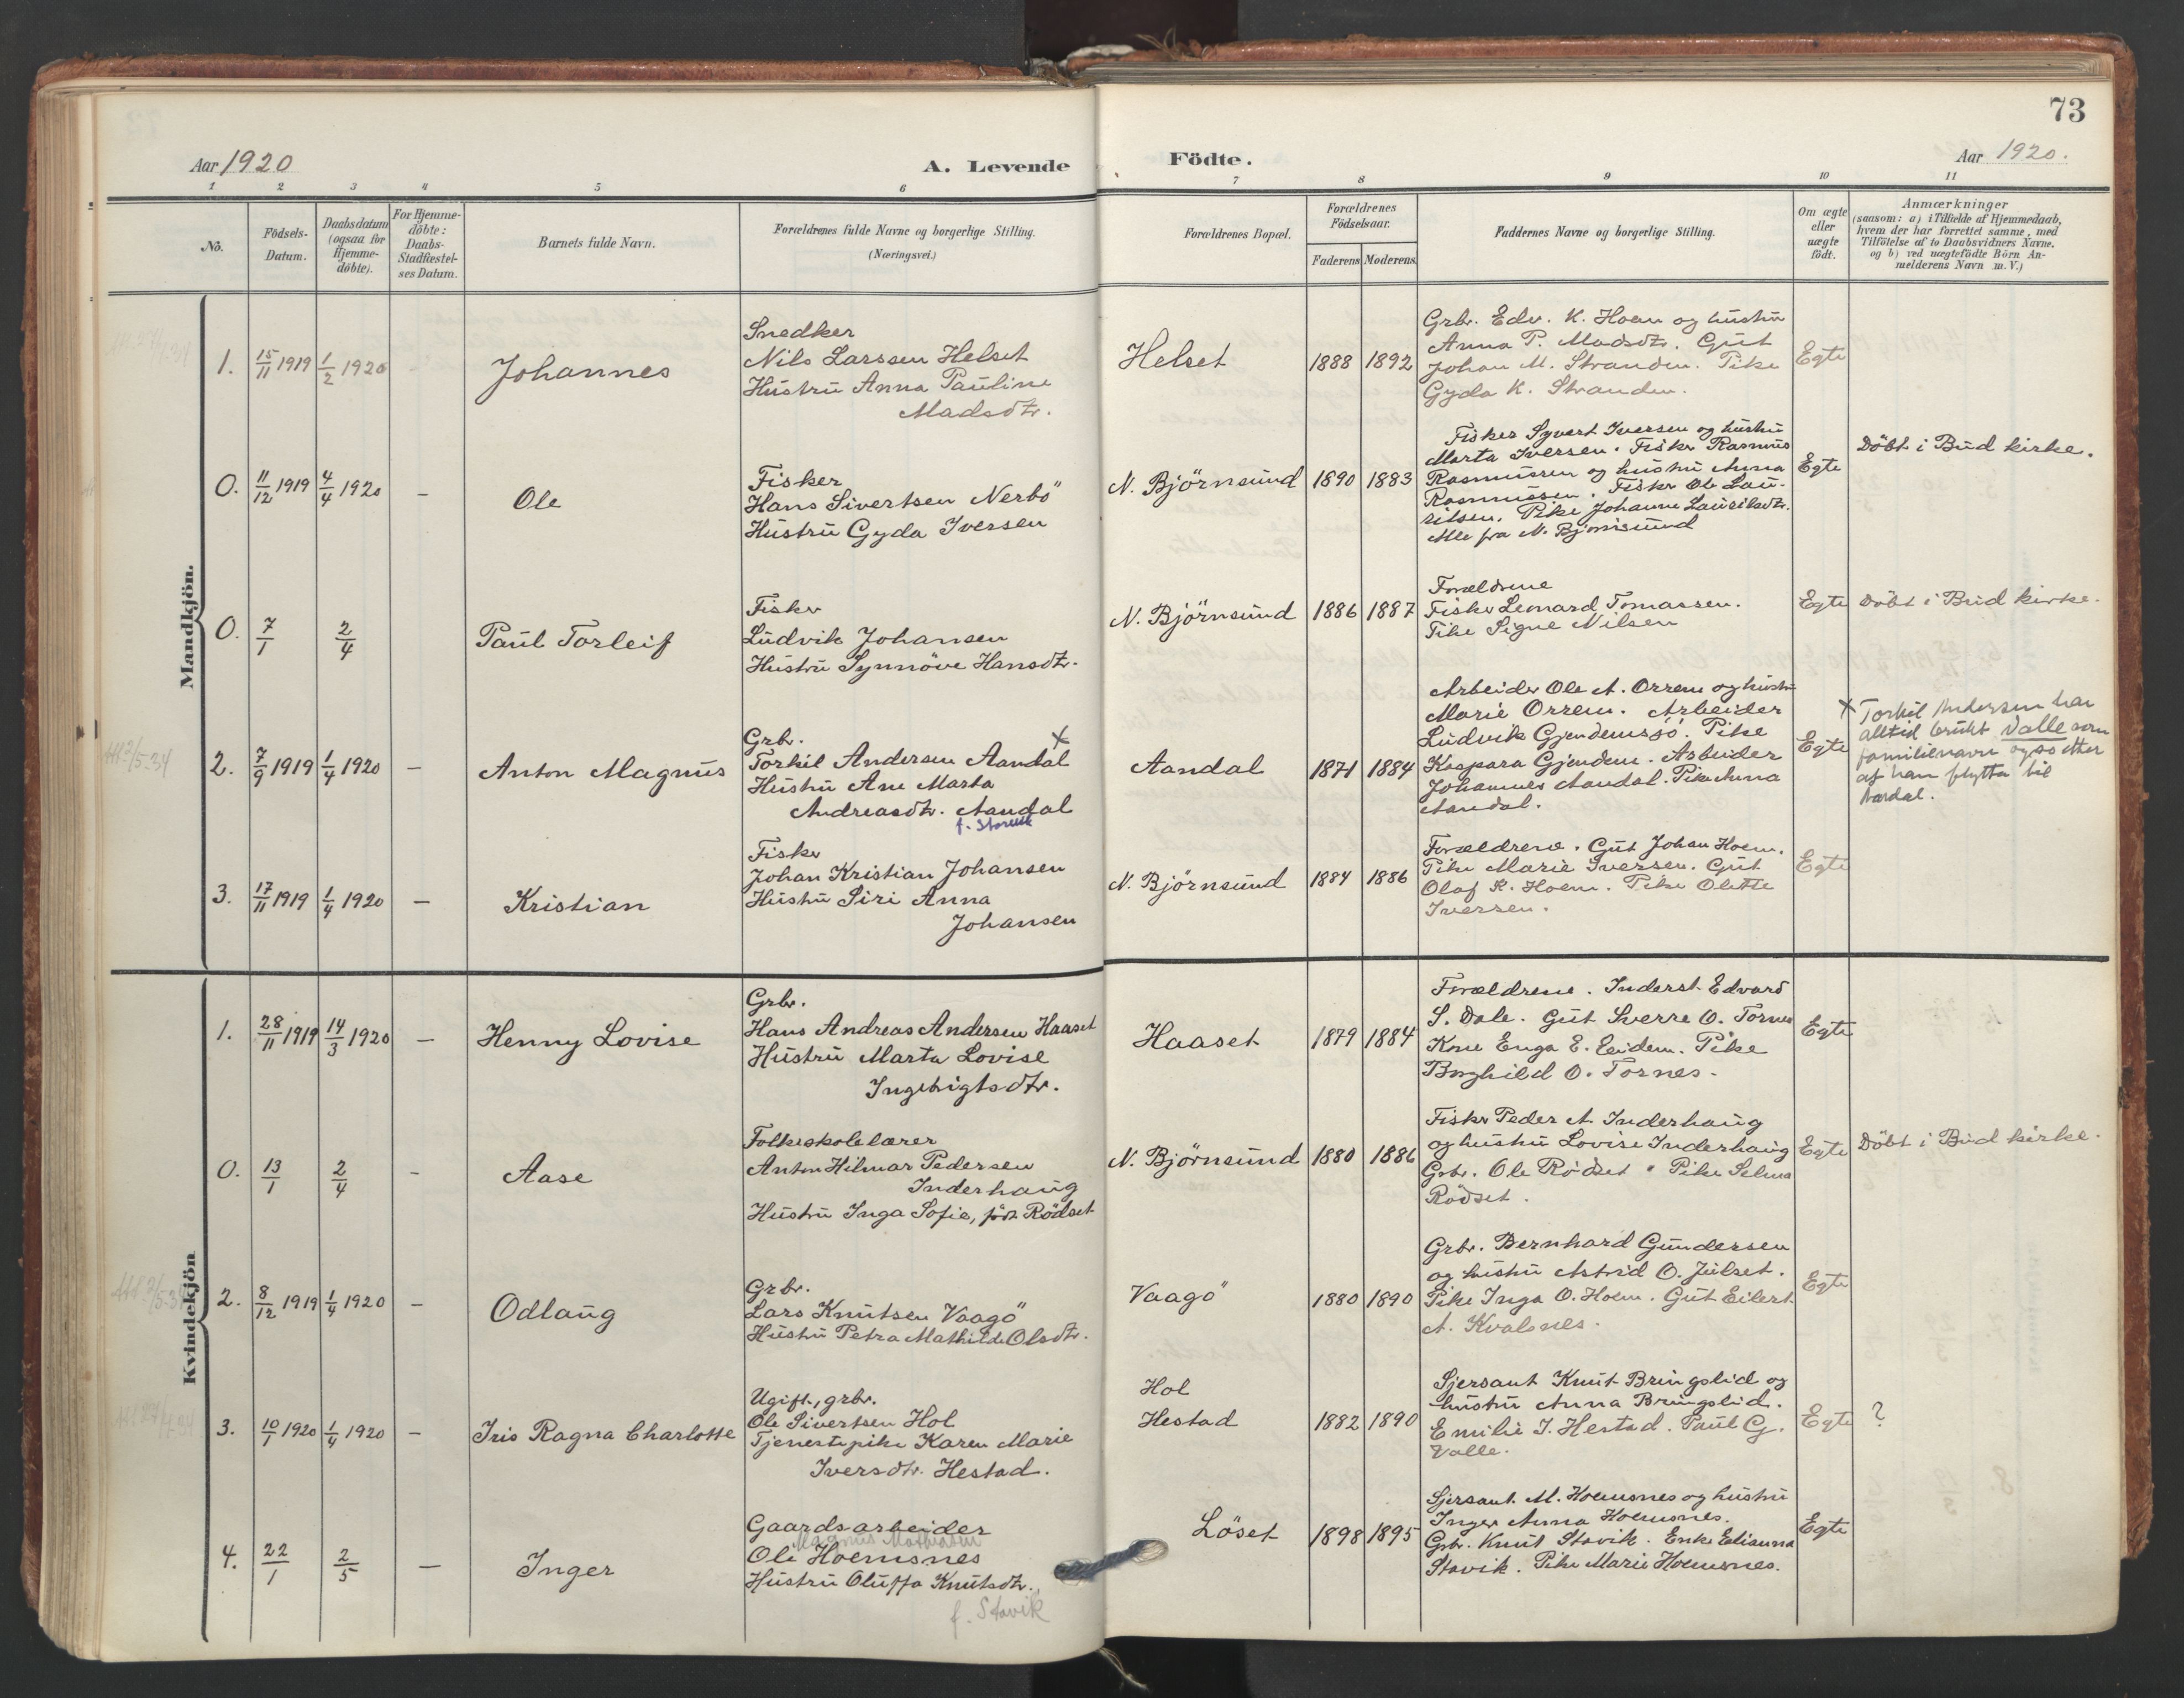 73
Aar 1920
A. Levende
Födte.
Aar 1920.
1 2 3 4 5 6 7 8 9 10 11
No.
Födsels-
Datum.
Daabsdatum
(ogsaa for
Hjemme-
döbte).
For Hjemme-
döbte:
Daabs-
Stadfæstel-
ses Datum.
Barnets fulde Navn.
Forældrenes fulde Navne og borgerlige Stilling.
(Næringsvei.)
Forældrenes Bopæl.
Forældrenes
Födselsaar.
Faderens Moderens
Faddernes Navne og borgerlige Stilling.
Om ægte
eller
uægte
födt.
Anmærkninger
(saasom: a) i Tilfælde af Hjemmedaab,
hvem der har forrettet samme, med
Tilföielse af to Daabsvidners Navne.
og b) ved uægtefödte Börn An-
melderens Navn m. V.)
Mandkjön.
1. 15/11 1919 1/2 1920
Johannes
Snedker
Nils Larssen Helset
Hustru Anna Pauline
Madsdtr.
Helset
1888 1892
Grbr. Edv. K. Hoem og hustru
Anna P. Madsdtr. Gut
Johan M. Stranden. Pike
Gyda K. Stranden.
Egte
0. 11/12 1919 4/4 1920 –
Ole
Fisker
Hans Sivertsen Nerbö
Hustru Gyda Iversen
N. Björnsund
1890 1883
Fisker Syvert Iversen og hustru
Marta Iversen. Fisker Rasmus
Rasmussen og hustru Anna
Rasmussen. Fisker Ole Lau-
ritsen. Pike Johanne Lauritsdtr.
Alle fra N. Bjørnsund
Egte
Döbt i Bud kirke.
0. 7/1 2/4
Paul Torleif
Fisker
Ludvik Johansen
Hustru Synnöve Hansdtr.
N. Björnsund
1886 1887
Forældrene
Fisker Leonard Tomassen.
Pike Signe Nilsen
Egte
Döbt i Bud kirke.
2. 7/9 1919 1/4 1920 –
Anton Magnus
Grbr. x
Torkil Andersen Aandal
Hustru Ane Marta
Andreasdtr. Aandal
f. Storvik
Aandal
1871 1884
Arbeider Ole A. Orrem og hustru
Marie Orrem. Arbeider
Ludvik Gjendemsjö. Pike
Kaspara Gjendem. Arbeider
Johannes Aandal. Pike Anna
Aandal.
Egte
x Torkil Andersen har
alltid brukt Valle som
familienavn også etter
at han flytta til
Aardal.
3. 17/11 1919 1/4 1920 –
Kristian
Fisker
Johan Kristian Johansen
Hustru Siri Anna
Johansen
N. Björnsund
1884 1886
Forældrene. Gut Johan Hoem.
Pike Marie Iversen. Gut
Olaf K. Hoem. Pike Olette
Iversen.
Egte
Kvindekjön
1. 28/11 1919 14/3 1920 –
Henny Lovise
Grbr.
Hans Andreas Andersen Haaset
Hustru Marta Lovise
Ingebrigtsdtr.
Haaset
1879 1884
Forældrene. Inderst Edvard
S. Dale. Gut Sverre O. Tornes
Kone Enga E. Eidem. Pike
Borghild O. Tornes.
Egte
0. 13/1 2/4 –
Aase
Folkeskolelærer
Anton Hilmar Pedersen
Inderhaug
Hustru Inga Sofie, född Rödset
N. Björnsund
1880 1886
Fisker Peder A. Inderhaug
og hustru Lovise Inderhaug
Grbr. Ole Rödset. Pike Selma
Rödset.
Egte
Döbt i Bud kirke.
2. 8/12 1919 1/4 1920 –
Odlaug
Grbr.
Lars Knutsen Vaagö
Hustru Petra Mathilde Olsdtr.
Vaagö
1880 1890
Grbr. Bernhard Gundersen
og hustru Astrid O. Julset.
Pike Inga O. Hoem. Gut Eilert
A. Kvalsnes.
Egte
3. 10/1 1920 1/4 1920 –
Iris Ragna Charlotte
Ugift, grbr.
Ole Sivertsen Hol
Tjenestepike Karen Marie
Iversdtr. Hestad.
Hol
Hestad
1882 1890
Sjersant Knut Bringslid og
hustru Anna Bringslid.
Emilie I. Hestad. Paul G.
Valle.
Egte ?
4. 22/1 2/5 –
Inger
Gaardsarbeider
Magnus Mathiasen
Ole Hoemsnes
Hustru Oluffa Knutsdtr.
f. Stavik
Löset
1898 1895
Sjersant. M. Hoemsnes og hustru
Inger Anna Hoemsnes.
Grbr. Knut Stavik. Enke Elianna
Stavik. Pike Marie Hoemsnes.
Egte